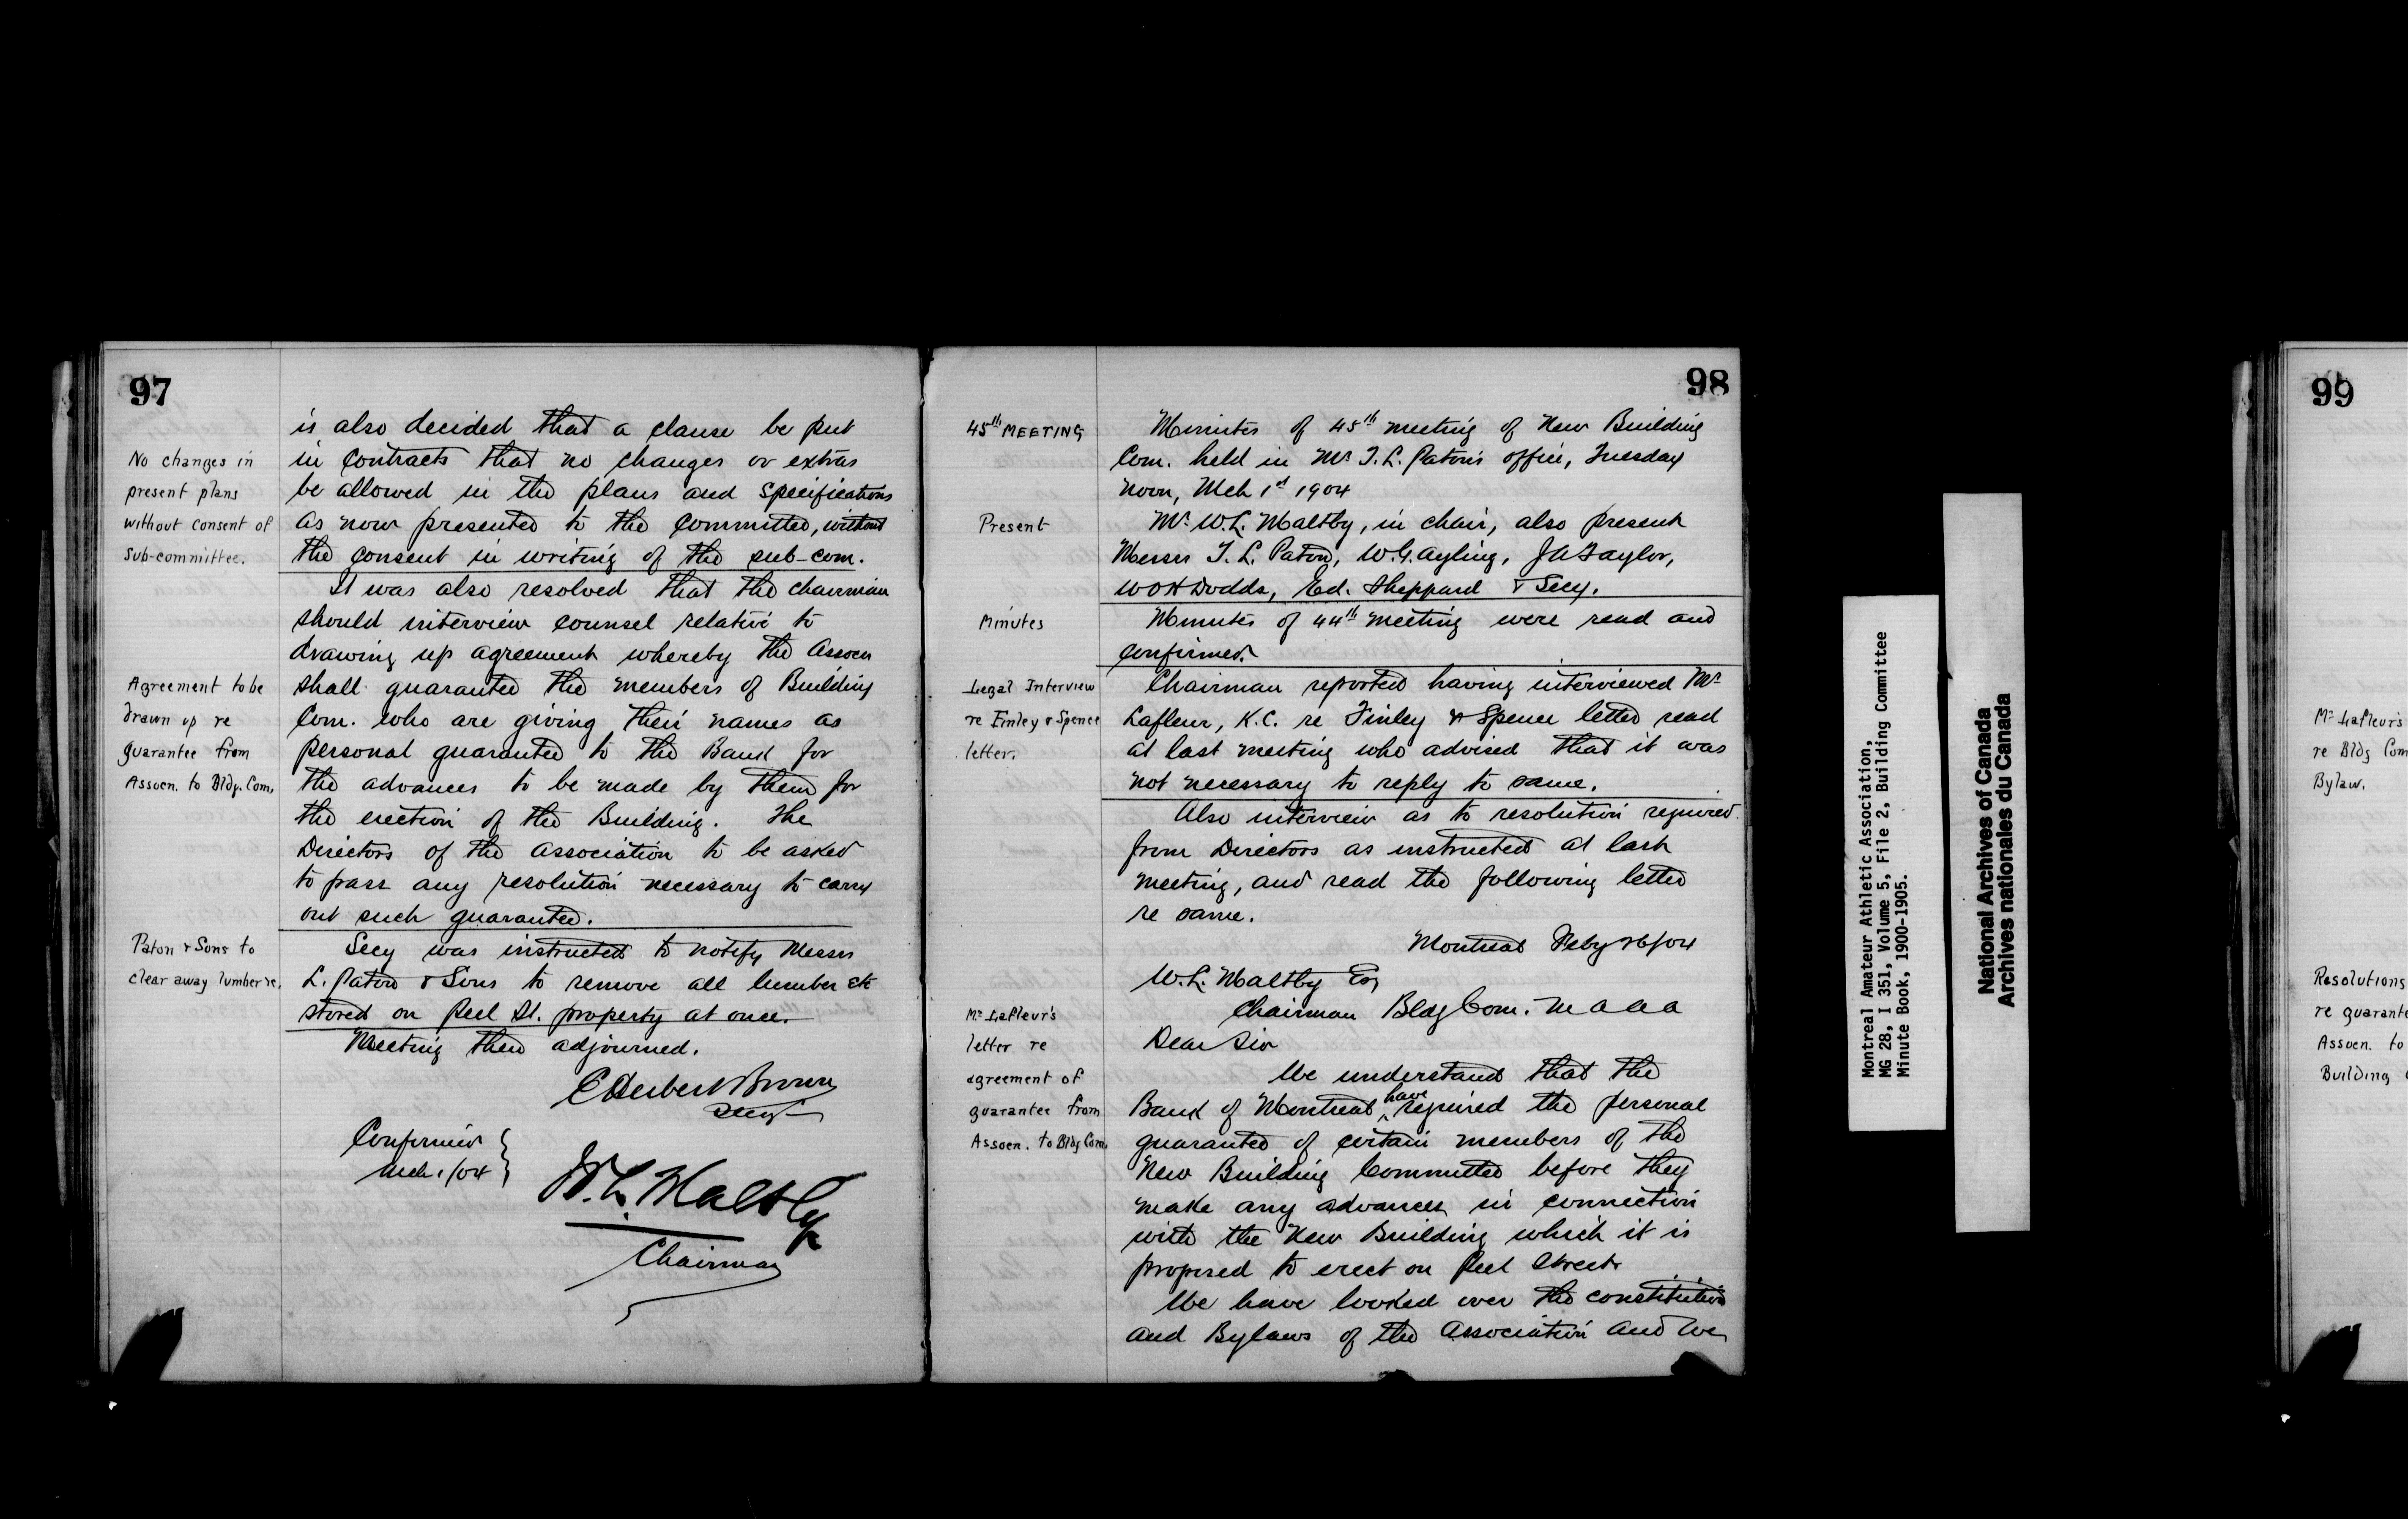 97
is also decided that a clause be put
No changes in
in contracts that no changes or extras
present plans
be allowed in the plans and specifications
without consent of
as now presented to the committee, without
Sub-committee.
the consent in writing of the sub-com.
It was also resolved that the chairman
should interview counsel relative to
drawing up agreement whereby the Assocn
Agreement to be
shall guarantee the members of Building
drawn up re
Com. who are giving their names as
guarantee from
personal guarantee to the Bank for
Assocn. to Bldg. Com.
the advances to be made by them for
the erection of the Building. The
Directors of the Association to be asked
to pass any resolution necessary to carry
out such guarantee.
Paton & Sons to
Secy was instructed to notify Messrs
clear away lumber &c.
L. Paton & Sons to remove all lumber etc
stored on Peel St. property at once.
Meeting then adjourned.
E Herbert Brown
Secy
Confirmed
Mch. 1/04
W. L. Maltby
Chairman
98
45th MEETING
Minutes of 45th meeting of New Building
Com. held in Mr. T. L. Paton's office, Tuesday
noon, Mch 1st 1904
Present
Mr. W. L. Maltby, in chair, also present
Messrs T. L. Paton, W. G. Ayling, J A Taylor,
W O H Dodds, Ed. Sheppard & Secy.
Minutes
Minutes of 44th meeting were read and
confirmed.
Legal Interview
Chairman reported having interviewed Mr
re Finley & Spence
Lafleur, K.C. re Finley & Spence letter read
letter.
at last meeting who advised that it was
not necessary to reply to same.
Also interview as to resolution required
from Directors as instructed at last
meeting, and read the following letter
re same.
Montreal Feby 26/04
W. L. Maltby Esq
Chairman Bldg Com. M A A A
Mr. Lafleur's
letter re
agreement of
guarantee from
Assocn. to Bldg Com.
Dear Sir
We understand that the
Bank of Montreal have required the personal
guarantee of certain members of the
New Building Committee before they
make any advances in connection
with the New Building which it is
proposed to erect on Peel Street.
We have looked over the constitution
and Bylaws of the Association and we
Montreal Amateur Athletic Association,
MG 28, I 351, Volume 5, File 2, Building Committee
Minute Book, 1900-1905.
National Archives of Canada
Archives nationales du Canada
99
Mr. Lafleur's
re Bldg Com
Bylaw.
Resolutions
re guarante
Assocn. to
Building